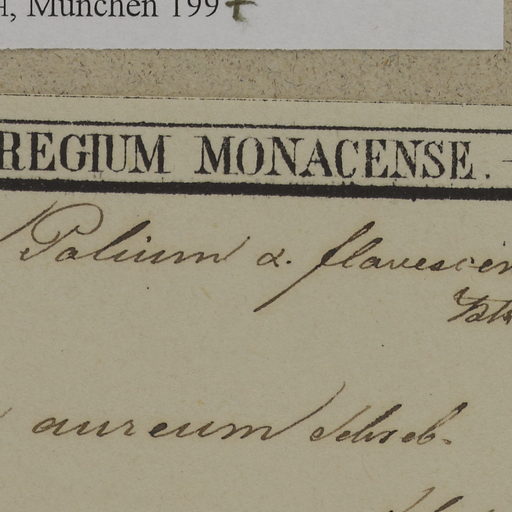 , München 1997
REGIUM MONACENSE.
Polium α. flavescen
aureum Schreb.